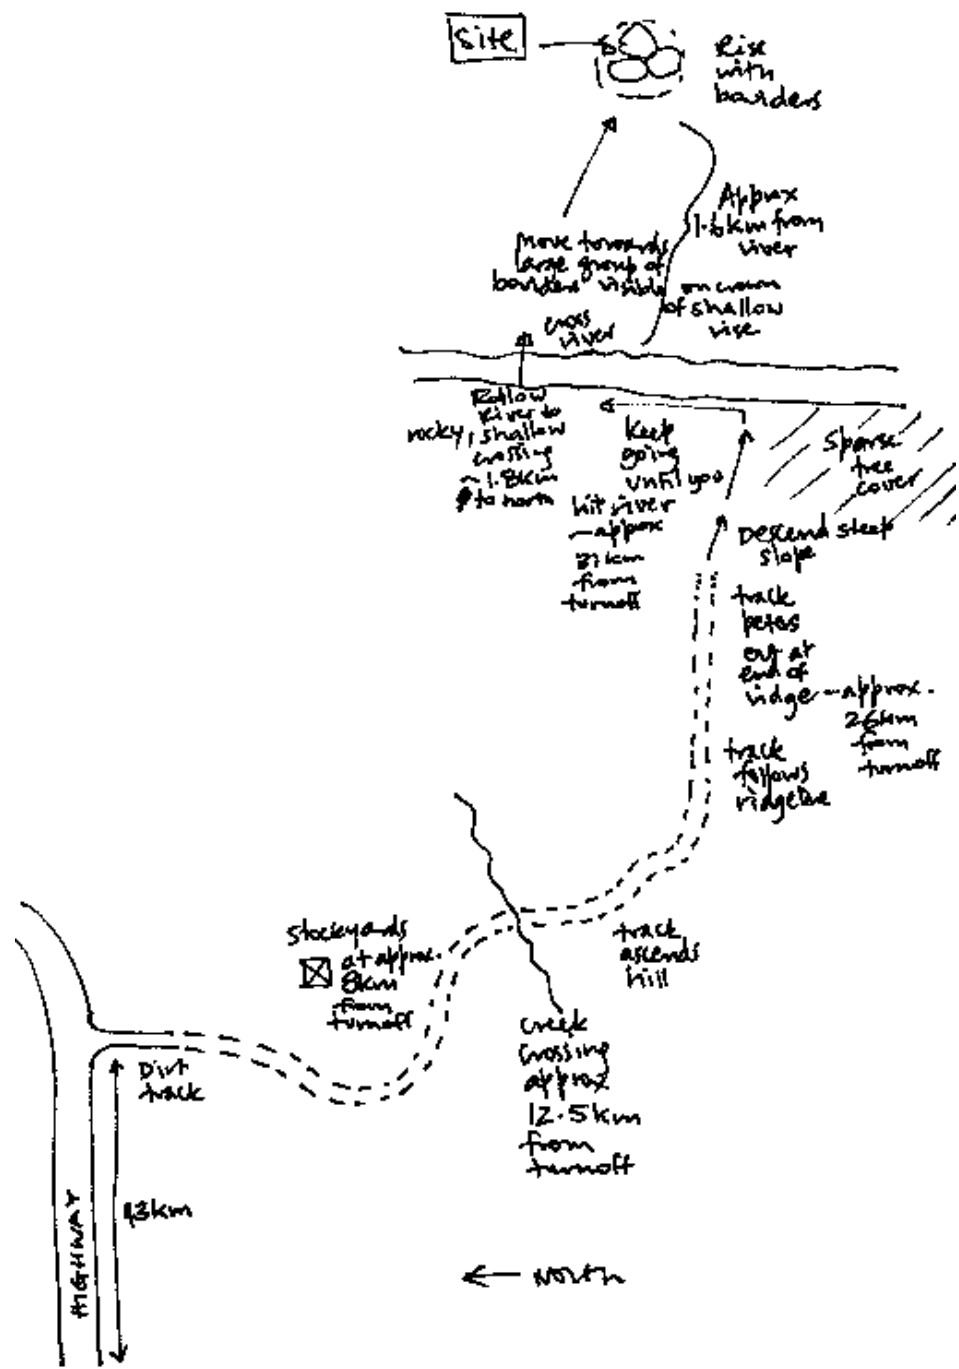 Site
Rise
with
boulders
Approx
1.6km from
river
Move towards
large group of
boulders visible
on crown
of shallow
rise
cross
river
Follow
River to
rocky, shallow
crossing
~1.8km
to north
Keep
going
until you
hit river
-approx
31km
from
turnoff
Sparse
tree
cover
Descend steep
slope
track
peters
out at
end of
ridge -approx.
26km
from
turnoff
track
follows
ridgeline
track
ascends
hill
Stockyards
at approx.
8km
from
turnoff
Creek
crossing
approx
12.5km
from
turnoff
Dirt
track
HIGHWAY
43km
North